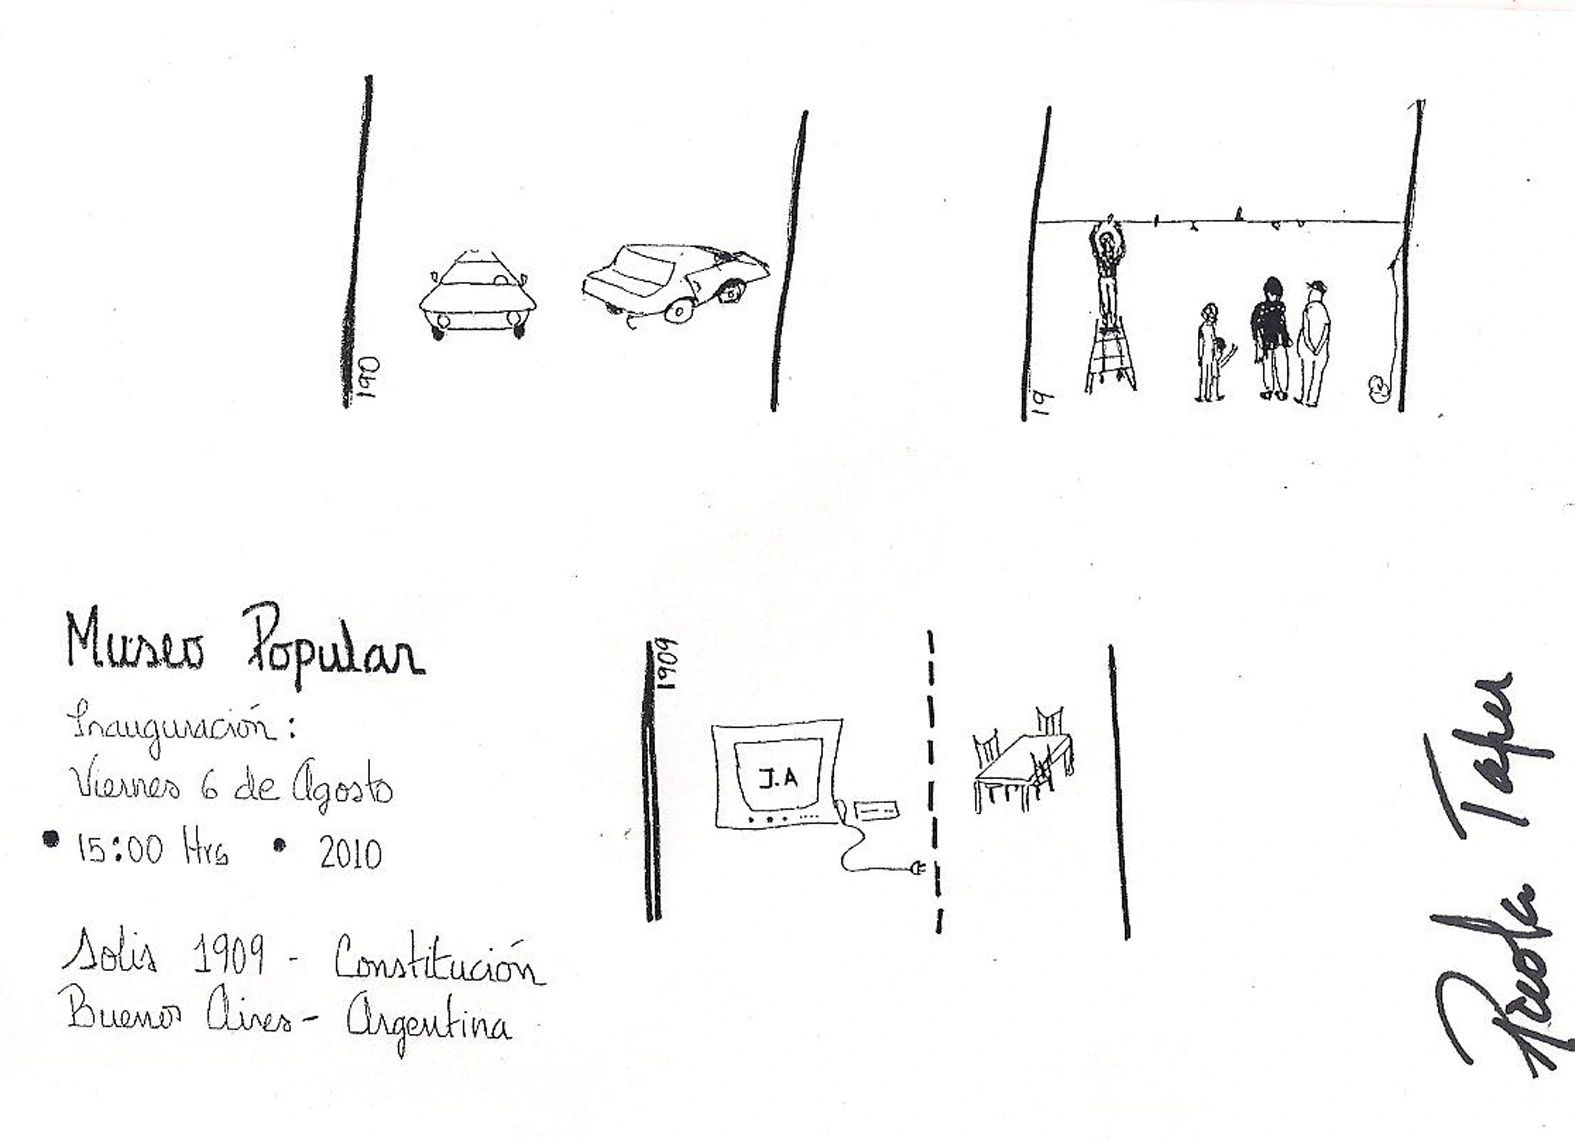 190
19
Museo Popular
Inauguración:
Viernes 6 de Agosto
• 15:00 Hrs • 2010
Solis 1909 - Constitución
Buenos Aires - Argentina
1909
J.A